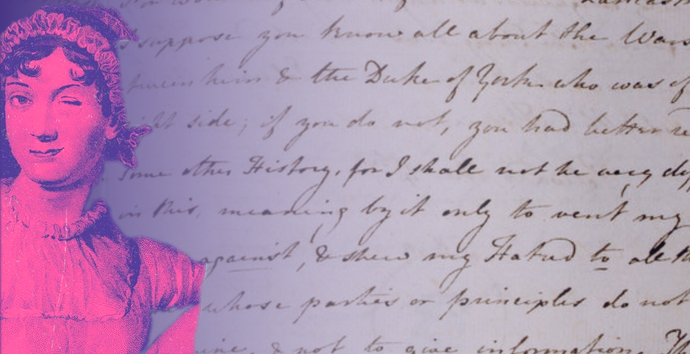 suppose you know all about the Wars
him & the Duke of York who was of
side; if you do not, you had better
some other History, for I shall not be very
in this, meaning by it only to vent my
against, & shew my Hatred to all
whose parties or principles do not
& not to give information.